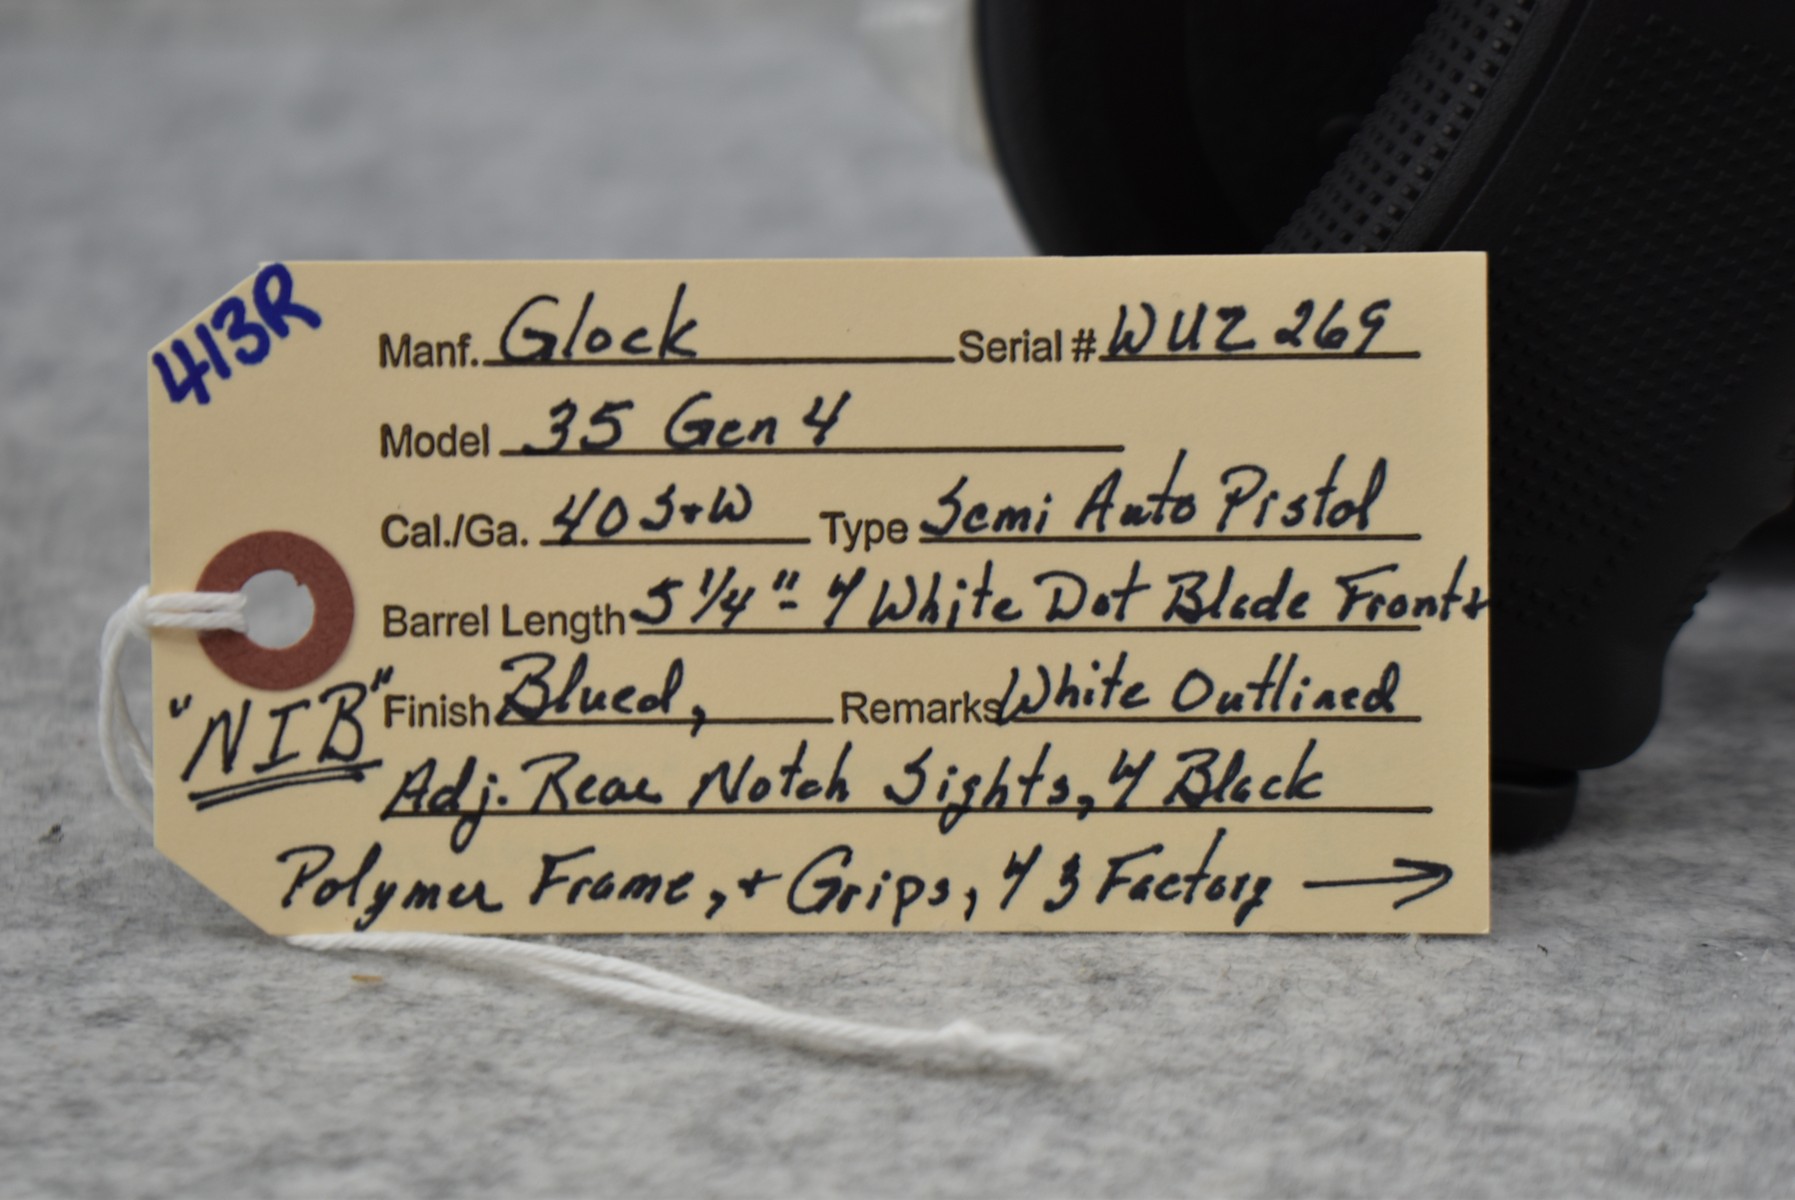 413R
Manf. Glock Serial # WUZ 269
Model 35 Gen 4
Cal./Ga. 40 S+W Type Semi Auto Pistol
Barrel Length 5 1/4" - White Dot Blade Front +
"NIB" Finish Blued, Remarks White Outlined
Adj. Rear Notch Sights, Black
Polymer Frame, + Grips, 3 Factory →